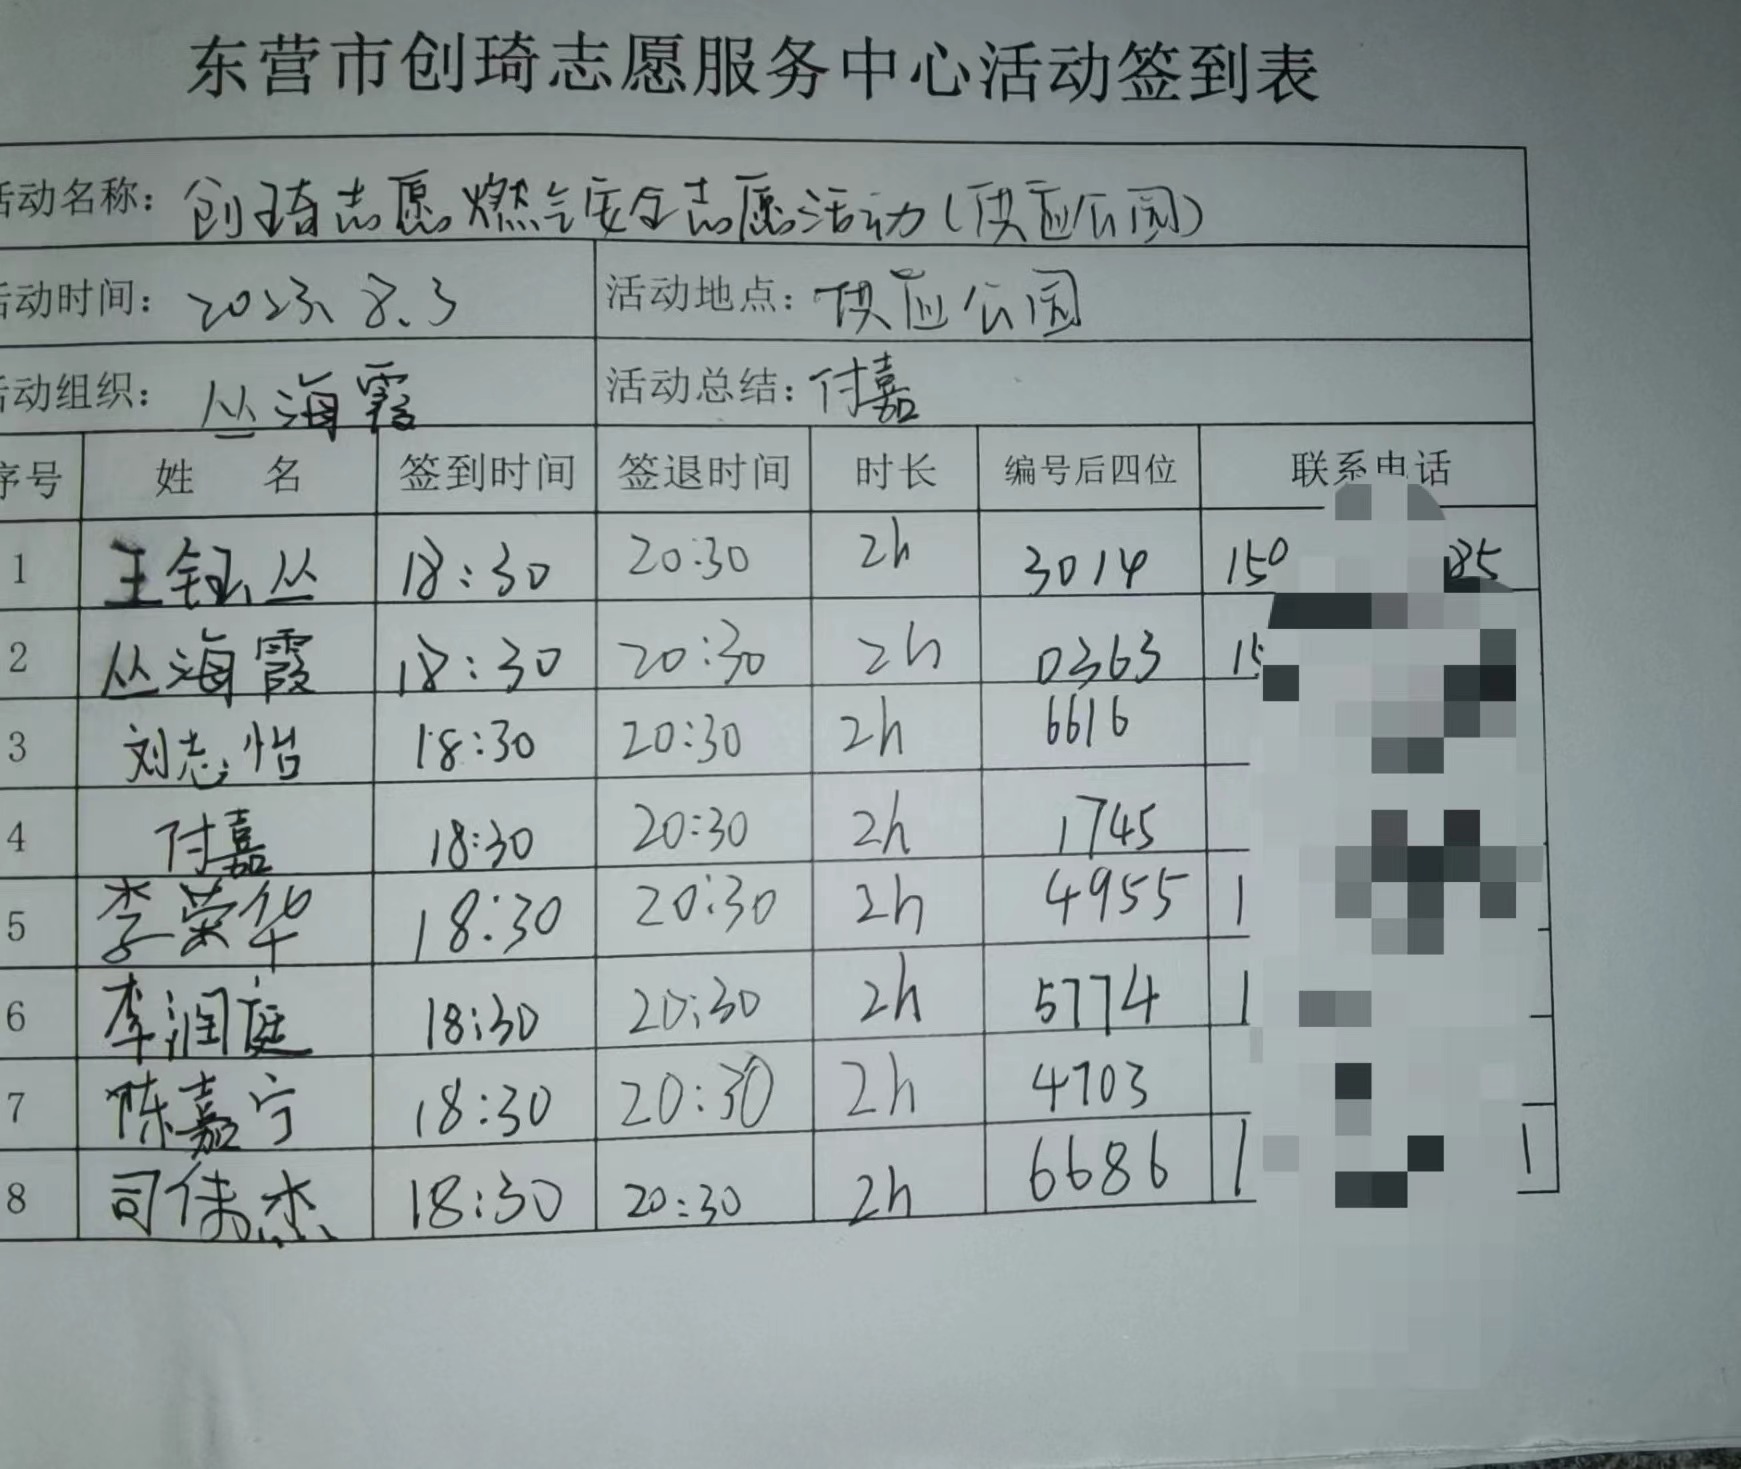 东营市创琦志愿服务中心活动签到表
活动名称：创琦志愿燃气安全志愿活动（供应公园）
活动时间：2023.8.3 活动地点：供应公园
活动组织：丛海霞 活动总结：付嘉
序号 姓名 签到时间 签退时间 时长 编号后四位 联系电话
1 王钰丛 18:30 20:30 2h 3014 150 85
2 丛海霞 18:30 20:30 2h 0363 15
3 刘志怡 18:30 20:30 2h 6616
4 付嘉 18:30 20:30 2h 1745
5 李荣华 18:30 20:30 2h 4955 1
6 李润庭 18:30 20:30 2h 5774 1
7 陈嘉宁 18:30 20:30 2h 4703
8 司伟杰 18:30 20:30 2h 6686 1 1